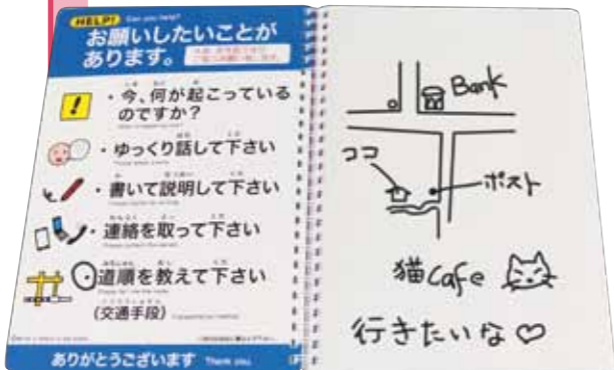 HELP! Can you help?
お願いしたいことが
あります。
・今、何が起こっている
のですか？
・ゆっくり話して下さい
・書いて説明して下さい
・連絡を取って下さい
道順を教えて下さい
(交通手段)
ありがとうございます Thank you.
Bank
ココ
ポスト
猫Cafe
行きたいな♡